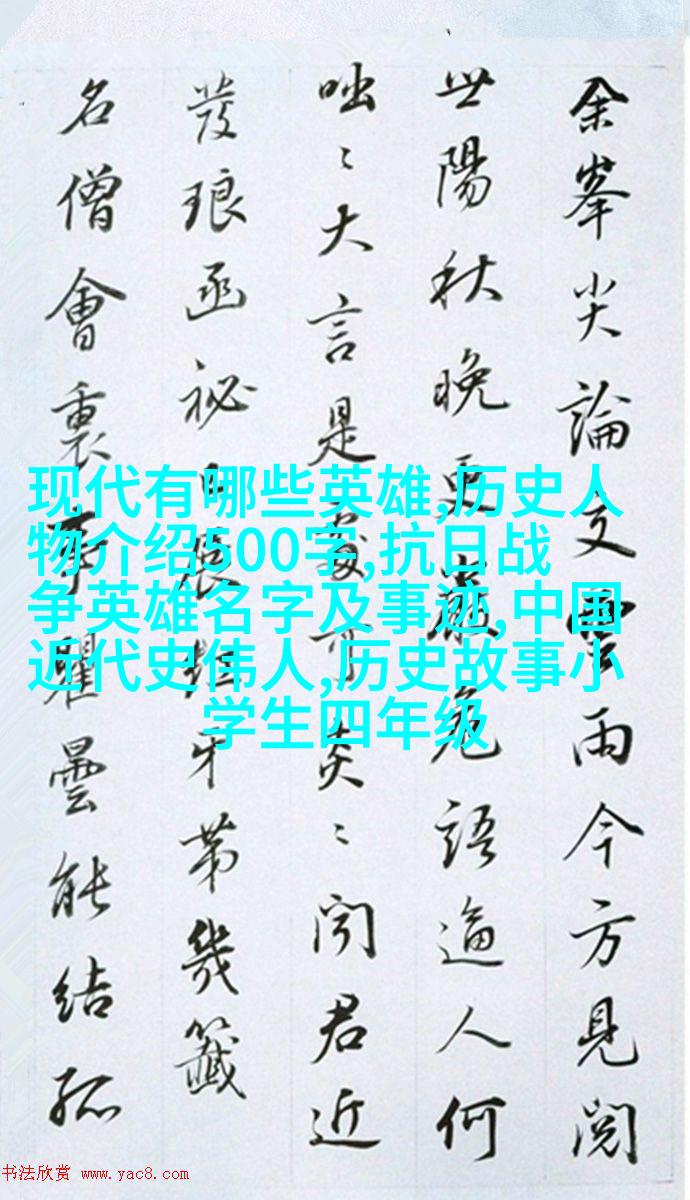 余峯尖論文雲雨今方見閱
世陽秋晚更嚴免語逼人何
咄〻大言是炎〻聞君近
發琅函祕牙第幾籤
名僧會裏瞿曇能結孤
现代有哪些英雄,历史人
物介绍500字,抗日战
争英雄名字及事迹,中国
近代史伟人,历史故事小
学生四年级
书法欣赏 www.yac8.com